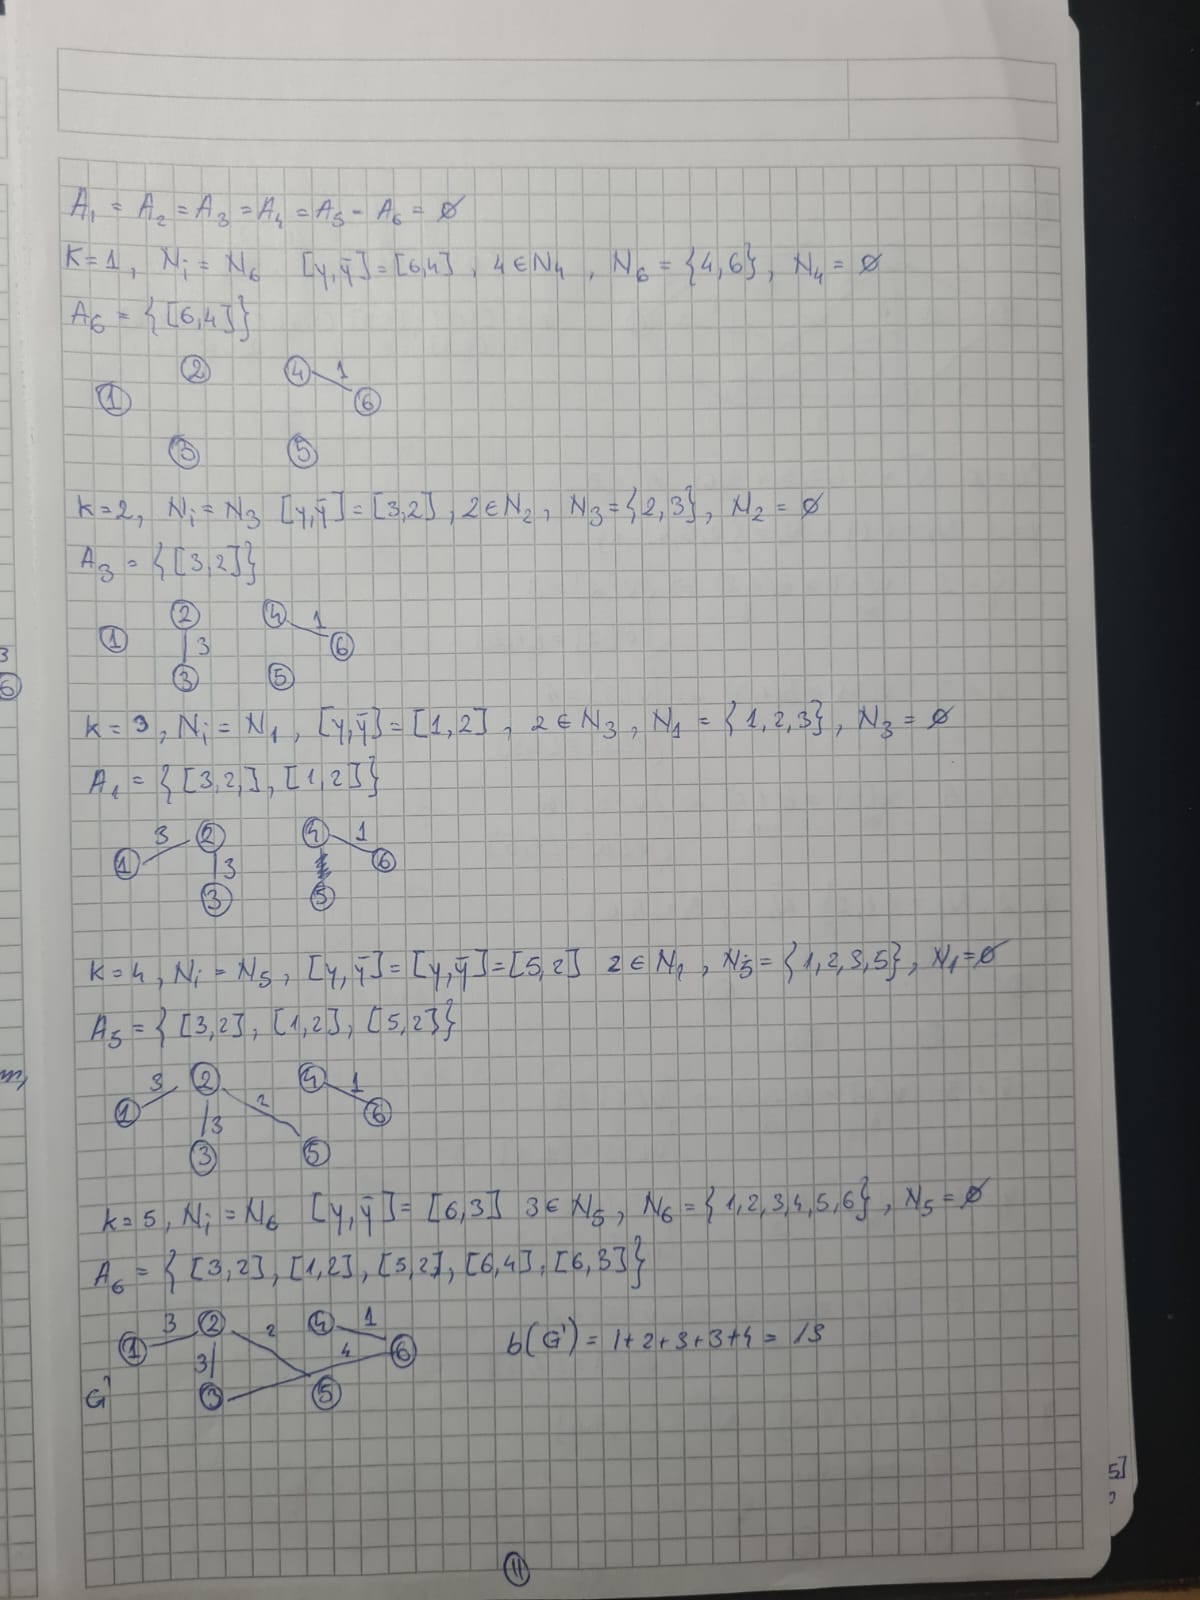 A₁ = A₂ = A₃ = A₄ = A₅ = A₆ = ∅
K=1, Nᵢ = N₆ [y,ȳ]=[6,4], 4∈N₄, N₆ = {4,6}, N₄ = ∅
A₆ = {[6,4]}
2 4 1
1 6
3 5
k=2, Nᵢ = N₃ [y,ȳ]=[3,2], 2∈N₂, N₃={2,3}, N₂ = ∅
A₃ = {[3,2]}
2 4 1
1 3 6
3 5
k=3, Nᵢ = N₁, [y,ȳ]=[1,2], 2∈N₃, N₁ = {1,2,3}, N₃ = ∅
A₁ = {[3,2,], [1,2]}
3 2 4 1
1 3 6
3 5
k=4, Nᵢ = N₅, [y,ȳ]=[y,ȳ]=[5,2] 2∈N₁, N₅={1,2,3,5}, N₁=∅
A₅ = {[3,2], [1,2], [5,2]}
3 2 4 1
1 3 2 6
3 5
k=5, Nᵢ = N₆ [y,ȳ]= [6,3] 3∈N₅, N₆ = {1,2,3,4,5,6}, N₅ = ∅
A₆ = {[3,2], [1,2], [5,2], [6,4], [6,3]}
3 2 2 4 1
1 3 4 6 b(G') = 1+2+3+3+4 = 13
G' 3 5
3
6
5]
11